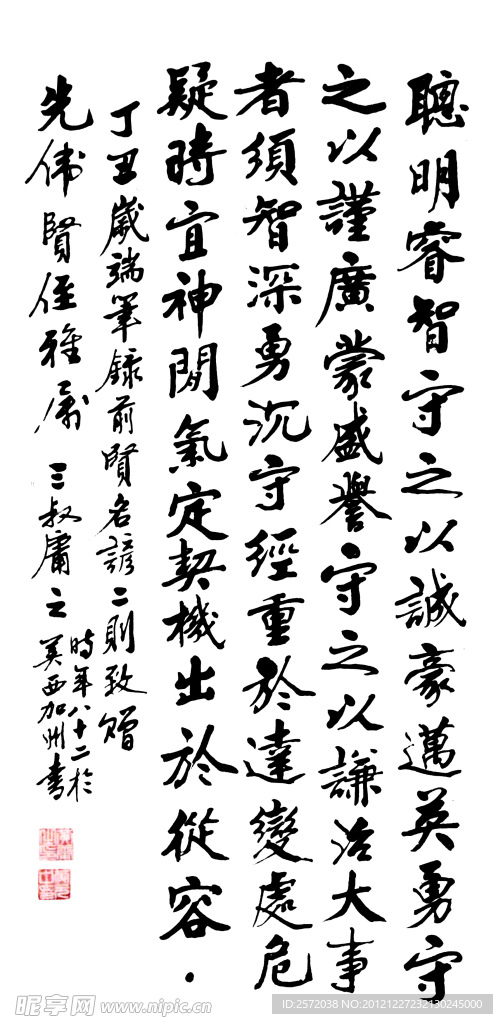 聰明睿智守之以誠豪邁英勇守
之以謹廣蒙盛譽守之以謙治大事
者須智深勇沉守經重於達變處危
疑時宜神閒氣定契機出於從容.
丁丑歲端筆錄前賢名諺二則致贈
先偉賢侄雅屬 三叔庸之
時年八十二於
美西加州書
昵享网 www.nipic.cn
ID:2572038 NO:20121227232130245000